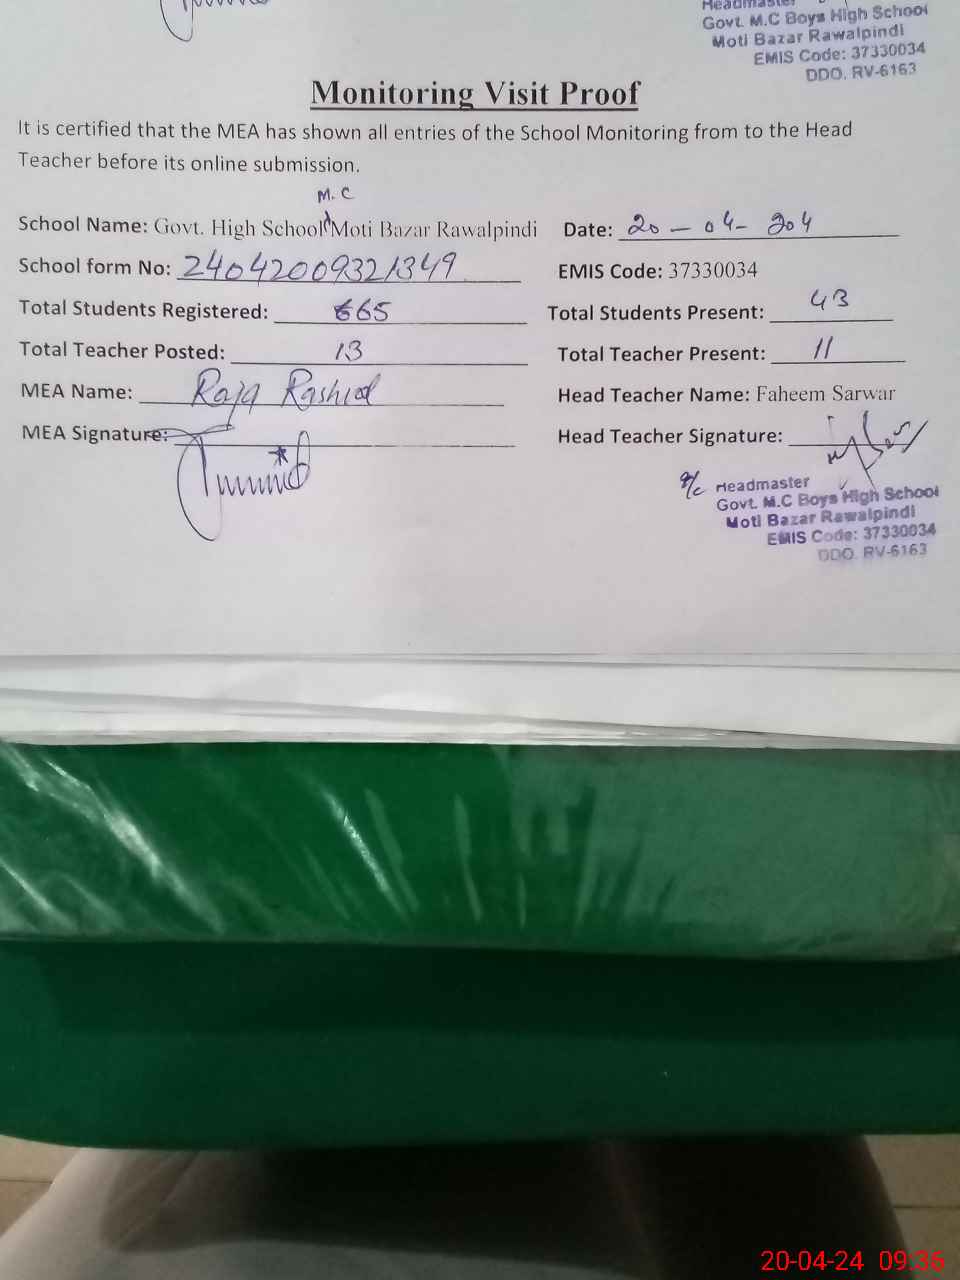 Headmaster
Govt. M.C Boys High School
Moti Bazar Rawalpindi
EMIS Code: 37330034
DDO. RV-6163
Monitoring Visit Proof
It is certified that the MEA has shown all entries of the School Monitoring from to the Head
Teacher before its online submission.
M.C
School Name: Govt. High School Moti Bazar Rawalpindi Date: 20-04-204
School form No: 24042009321349 EMIS Code: 37330034
Total Students Registered: 665 Total Students Present: 43
Total Teacher Posted: 13 Total Teacher Present: 11
MEA Name: Raja Rashid Head Teacher Name: Faheem Sarwar
MEA Signature: Head Teacher Signature:
Headmaster
Govt. M.C Boys High School
Moti Bazar Rawalpindi
EMIS Code: 37330034
DDO. RV-6163
20-04-24 09:36